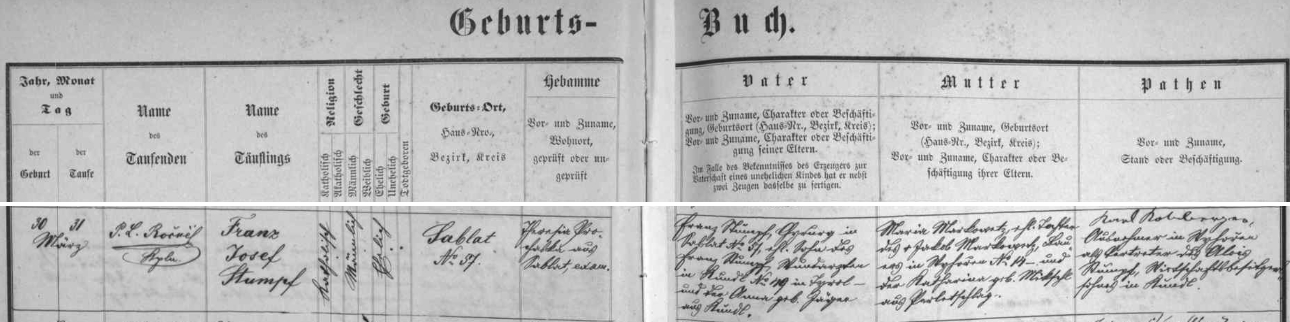 Geburts-Buch.
Jahr, Monat
und
Tag
der
Geburt
der
Taufe
Name
des
Taufenden
Name
des
Täuflings
Religion
Katholisch
Akatholisch
Geschlecht
Männlich
Weiblich
Geburt
Ehelich
Unehelich
Todtgeboren
Geburts-Ort,
Haus-Nro.,
Bezirk, Kreis
Hebamme
Vor- und Zuname,
Wohnort,
geprüft oder un-
geprüft
Vater
Vor- und Zuname, Charakter oder Beschäfti-
gung, Geburtsort (Haus-Nr., Bezirk, Kreis);
Vor- und Zuname, Charakter oder Beschäfti-
gung seiner Eltern.
Im Falle des Bekenntnisses des Erzeugers zur
Vaterschaft eines unehelichen Kindes hat er nebst
zwei Zeugen dasselbe zu fertigen.
Mutter
Vor- und Zuname, Geburtsort
(Haus-Nr., Bezirk, Kreis);
Vor- und Zuname, Charakter oder Be-
schäftigung ihrer Eltern.
Pathen
Vor- und Zuname,
Stand oder Beschäftigung.
30 31
März
P. L.
Franz
Josef
Stumpf
Katholisch
Männlich
Ehelich
Sablat
No 57.
Theresia
aus
Sablat, exam.
Franz Stumpf, in
Sablat No 57, ehl. Sohn des
Franz Stumpf,
in Kundl No in Tyrol
und der Anna geb. Häger
aus Kundl.
Maria Markowetz, ehl. Tochter
des Jakob Markowetz, Bau-
ers in No und
der Katharina geb.
aus Perletschlag.
Karl
Ausnehmer in
als Vertreter des Alois
Stumpf, Wirtschaftsbesitzer-
sohnes in Kundl.